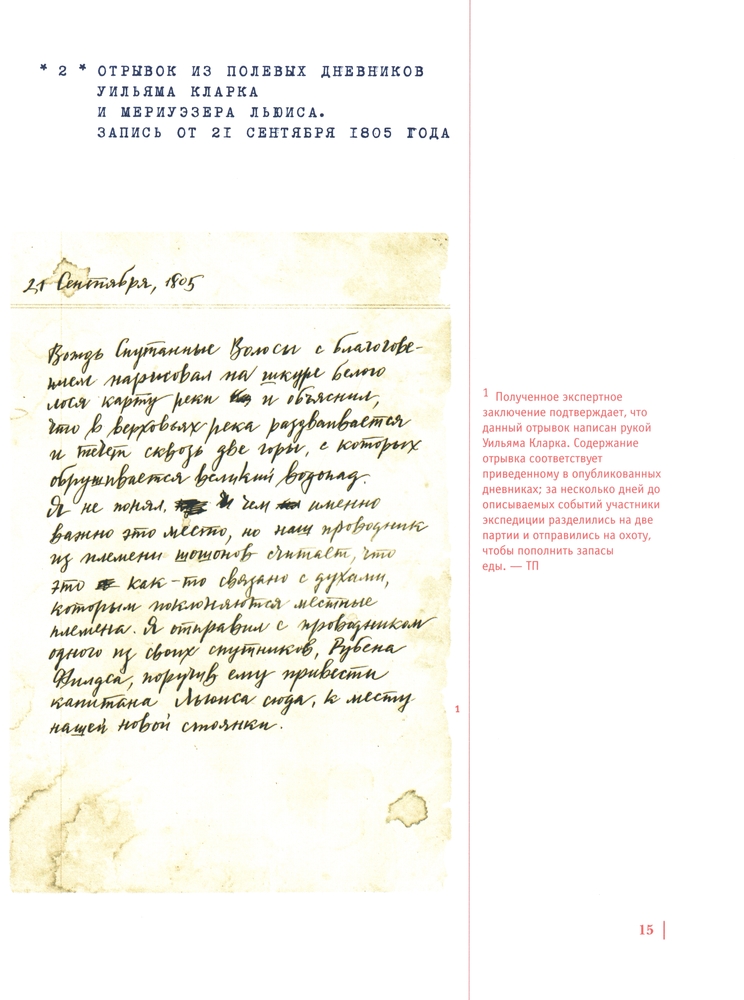 * 2 * ОТРЫВОК ИЗ ПОЛЕВЫХ ДНЕВНИКОВ
УИЛЬЯМА КЛАРКА
И МЕРИУЭЗЕРА ЛЬЮИСА.
ЗАПИСЬ ОТ 21 СЕНТЯБРЯ 1805 ГОДА
21 Сентября, 1805
Вождь Спутанные Волосы с благогове-
нием нарисовал на шкуре белого
лося карту реки и объяснил,
что в верховьях река раздваивается
и течет сквозь две горы, с которых
обрушивается великий водопад.
Я не понял, чем именно
важно это место, но наш проводник
из племени шошонов считает, что
это как-то связано с духами,
которым поклоняются местные
племена. Я отправил с проводником
одного из своих спутников, Рубена
Филдса, поручив ему привести
капитана Льюиса сюда, к месту
нашей новой стоянки.
1
1 Полученное экспертное
заключение подтверждает, что
данный отрывок написан рукой
Уильяма Кларка. Содержание
отрывка соответствует
приведенному в опубликованных
дневниках; за несколько дней до
описываемых событий участники
экспедиции разделились на две
партии и отправились на охоту,
чтобы пополнить запасы
еды. — ТП
15